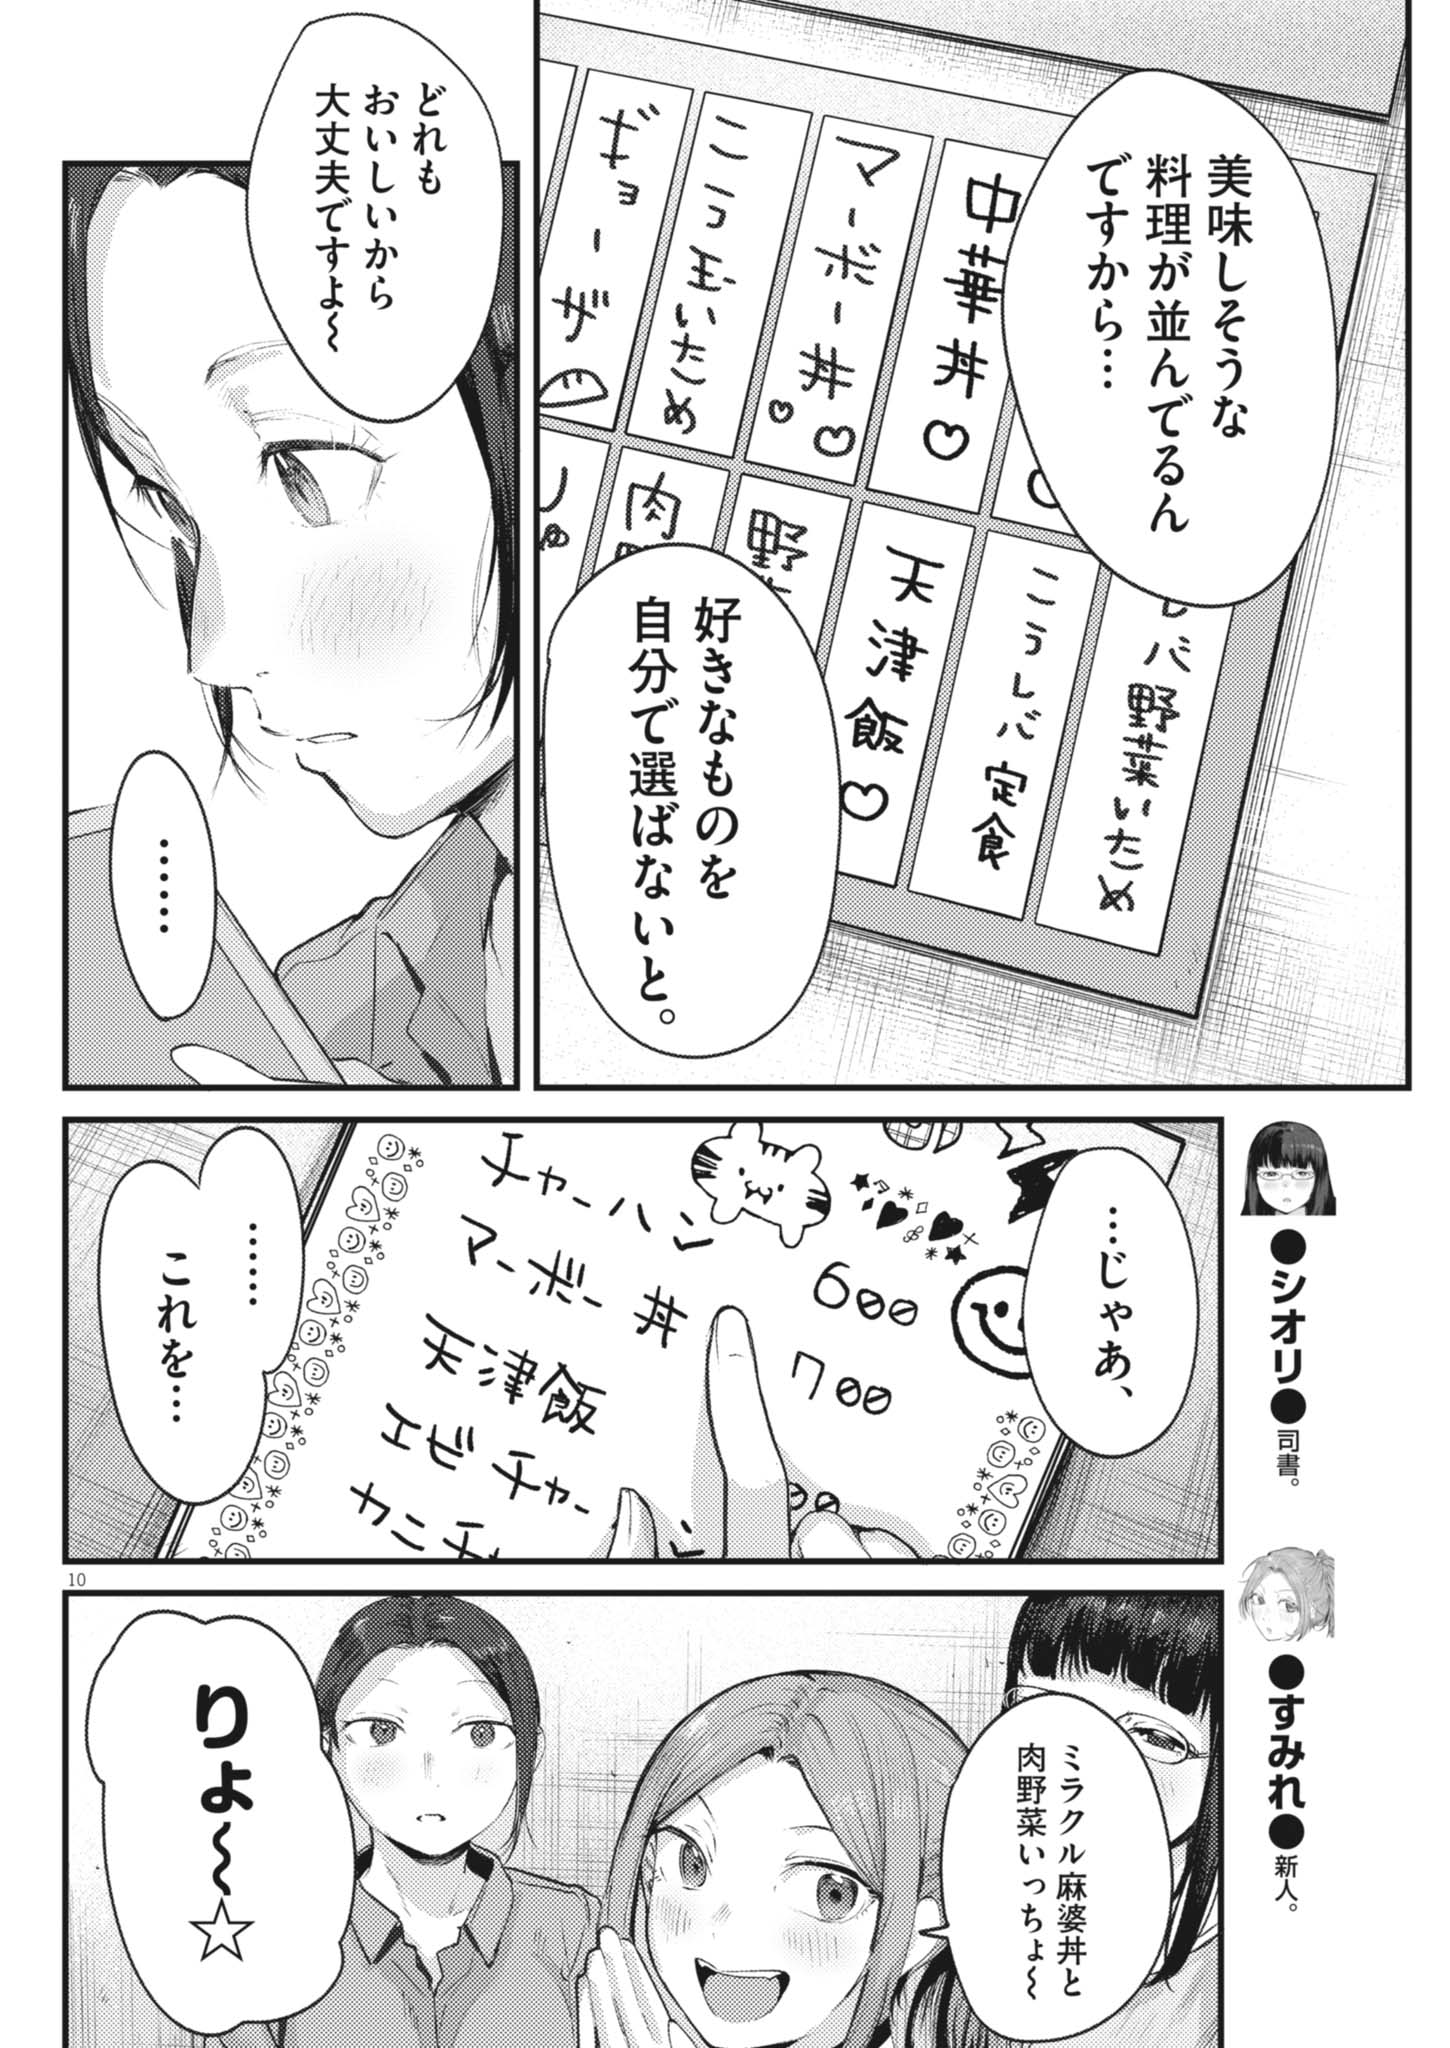 美味しそうな
料理が並んでるん
ですから…
中華丼♡
マーボー丼♡♡
こう玉いため
ギョーザ
レバ野菜いため
こうレバ定食
天津飯♡
野菜
肉
しゅ
好きなものを
自分で選ばないと。
どれも
おいしいから
大丈夫ですよ〜
……
…じゃあ、
チャーハン
600
マーボー丼
700
天津飯
エビチャー
カニチャ
……
これを…
●シオリ●司書。
●すみれ●新人。
10
ミラクル麻婆丼と
肉野菜いっちょ〜
りょ〜☆